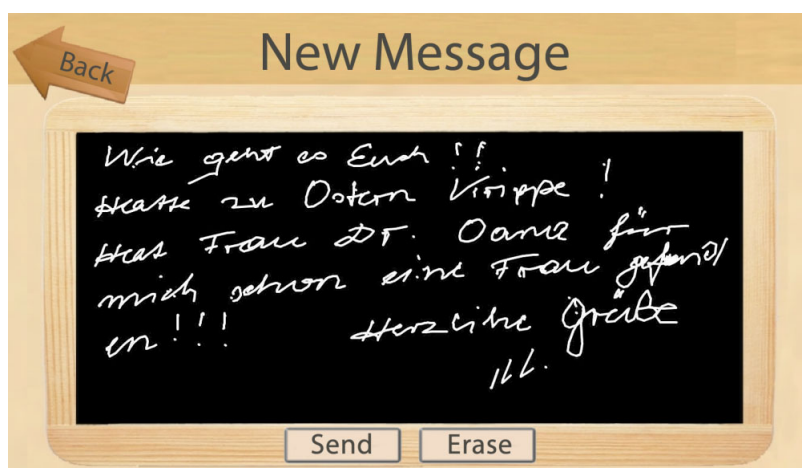 Back
New Message
Wie geht es Euch !!
Hatte zu Ostern Krippe !
Hat Frau Dr. Oana für
mich schon eine Frau gefund
en !!!
Herzliche Grüße
Send
Erase